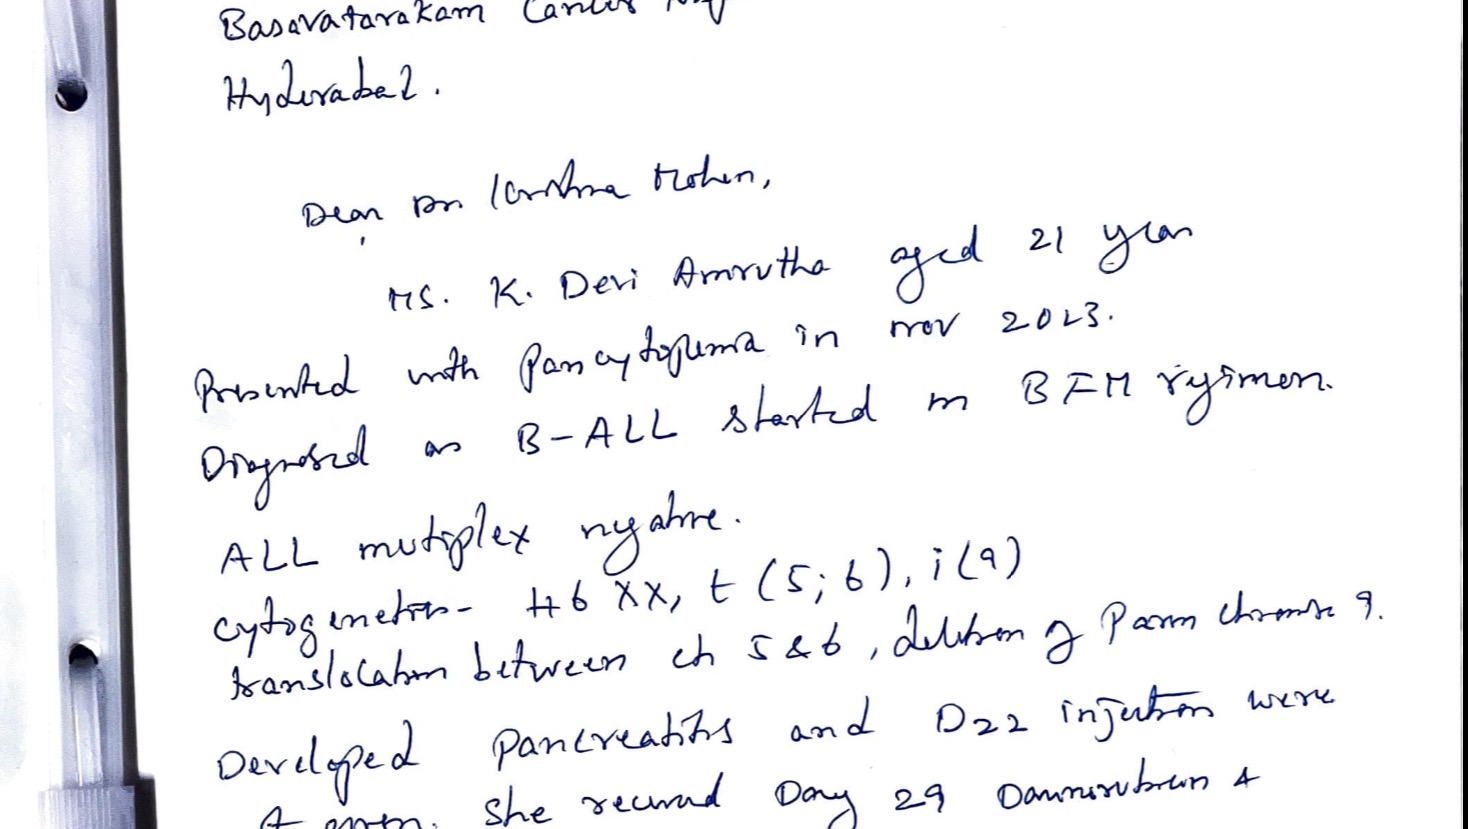 Basavatarakam Cancer
Hyderabad.
Dear Dr. Krishna Mohan,
Ms. K. Devi Amrutha aged 21 year
Presented with Pancytopenia in nov 2023.
Diagnosed as B-ALL started on BFM regimen.
ALL mutiplex negative.
cytogenetics - 46 XX, t (5; 6), i(9)
translocation between ch 5 & 6, deletion of P arm chromse 9.
Developed Pancreatitis and D22 injection were
She received Day 29 Daunorubicin &